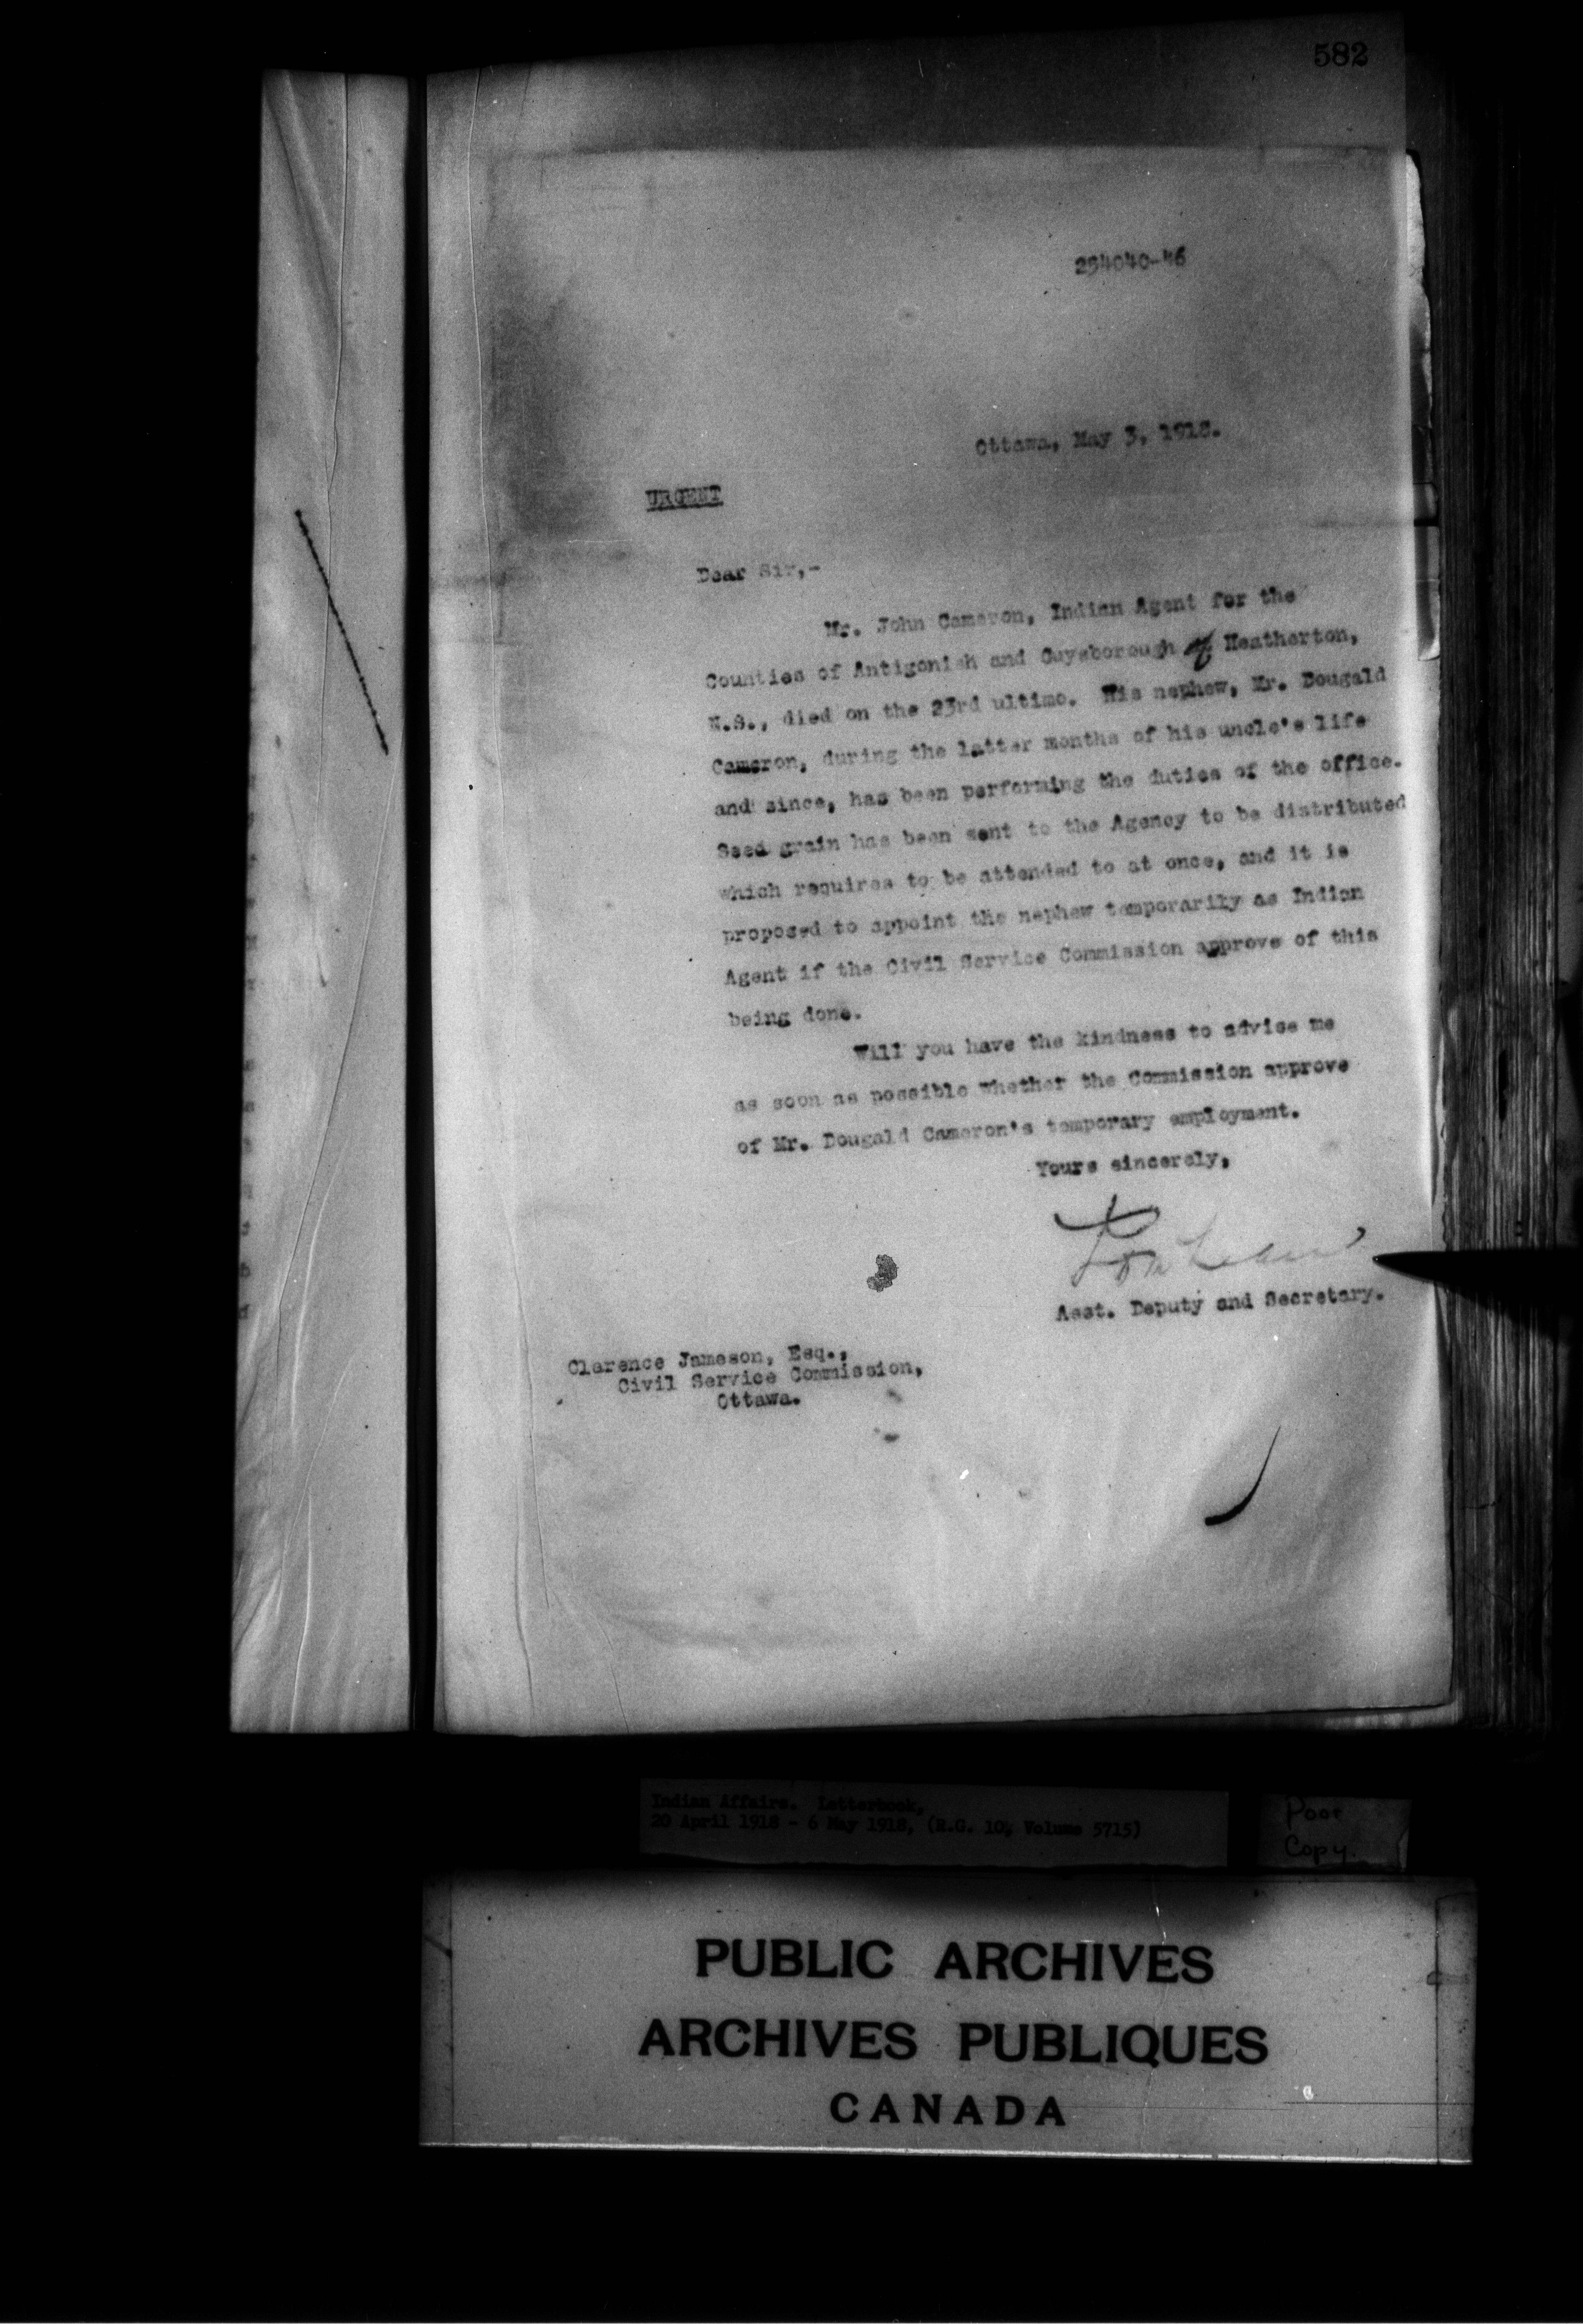 582
254040-46
Ottawa, May 3, 1918.
URGENT
Dear Sir,-
Mr. John Cameron, Indian Agent for the
Counties of Antigonish and Guysborough of Heatherton,
N.S., died on the 23rd ultimo. His nephew, Mr. Dougald
Cameron, during the latter months of his uncle's life
and since, has been performing the duties of the office.
Seed grain has been sent to the Agency to be distributed
which requires to be attended to at once, and it is
proposed to appoint the nephew temporarily as Indian
Agent if the Civil Service Commission approve of this
being done.
Will you have the kindness to advise me
as soon as possible whether the Commission approve
of Mr. Dougald Cameron's temporary employment.
Yours sincerely,
Asst. Deputy and Secretary.
Clarence Jameson, Esq.,
Civil Service Commission,
Ottawa.
Indian Affairs. Letterbook,
20 April 1918 - 6 May 1918, (R.G. 10, Volume 5715)
Poor
Copy.
PUBLIC ARCHIVES
ARCHIVES PUBLIQUES
CANADA